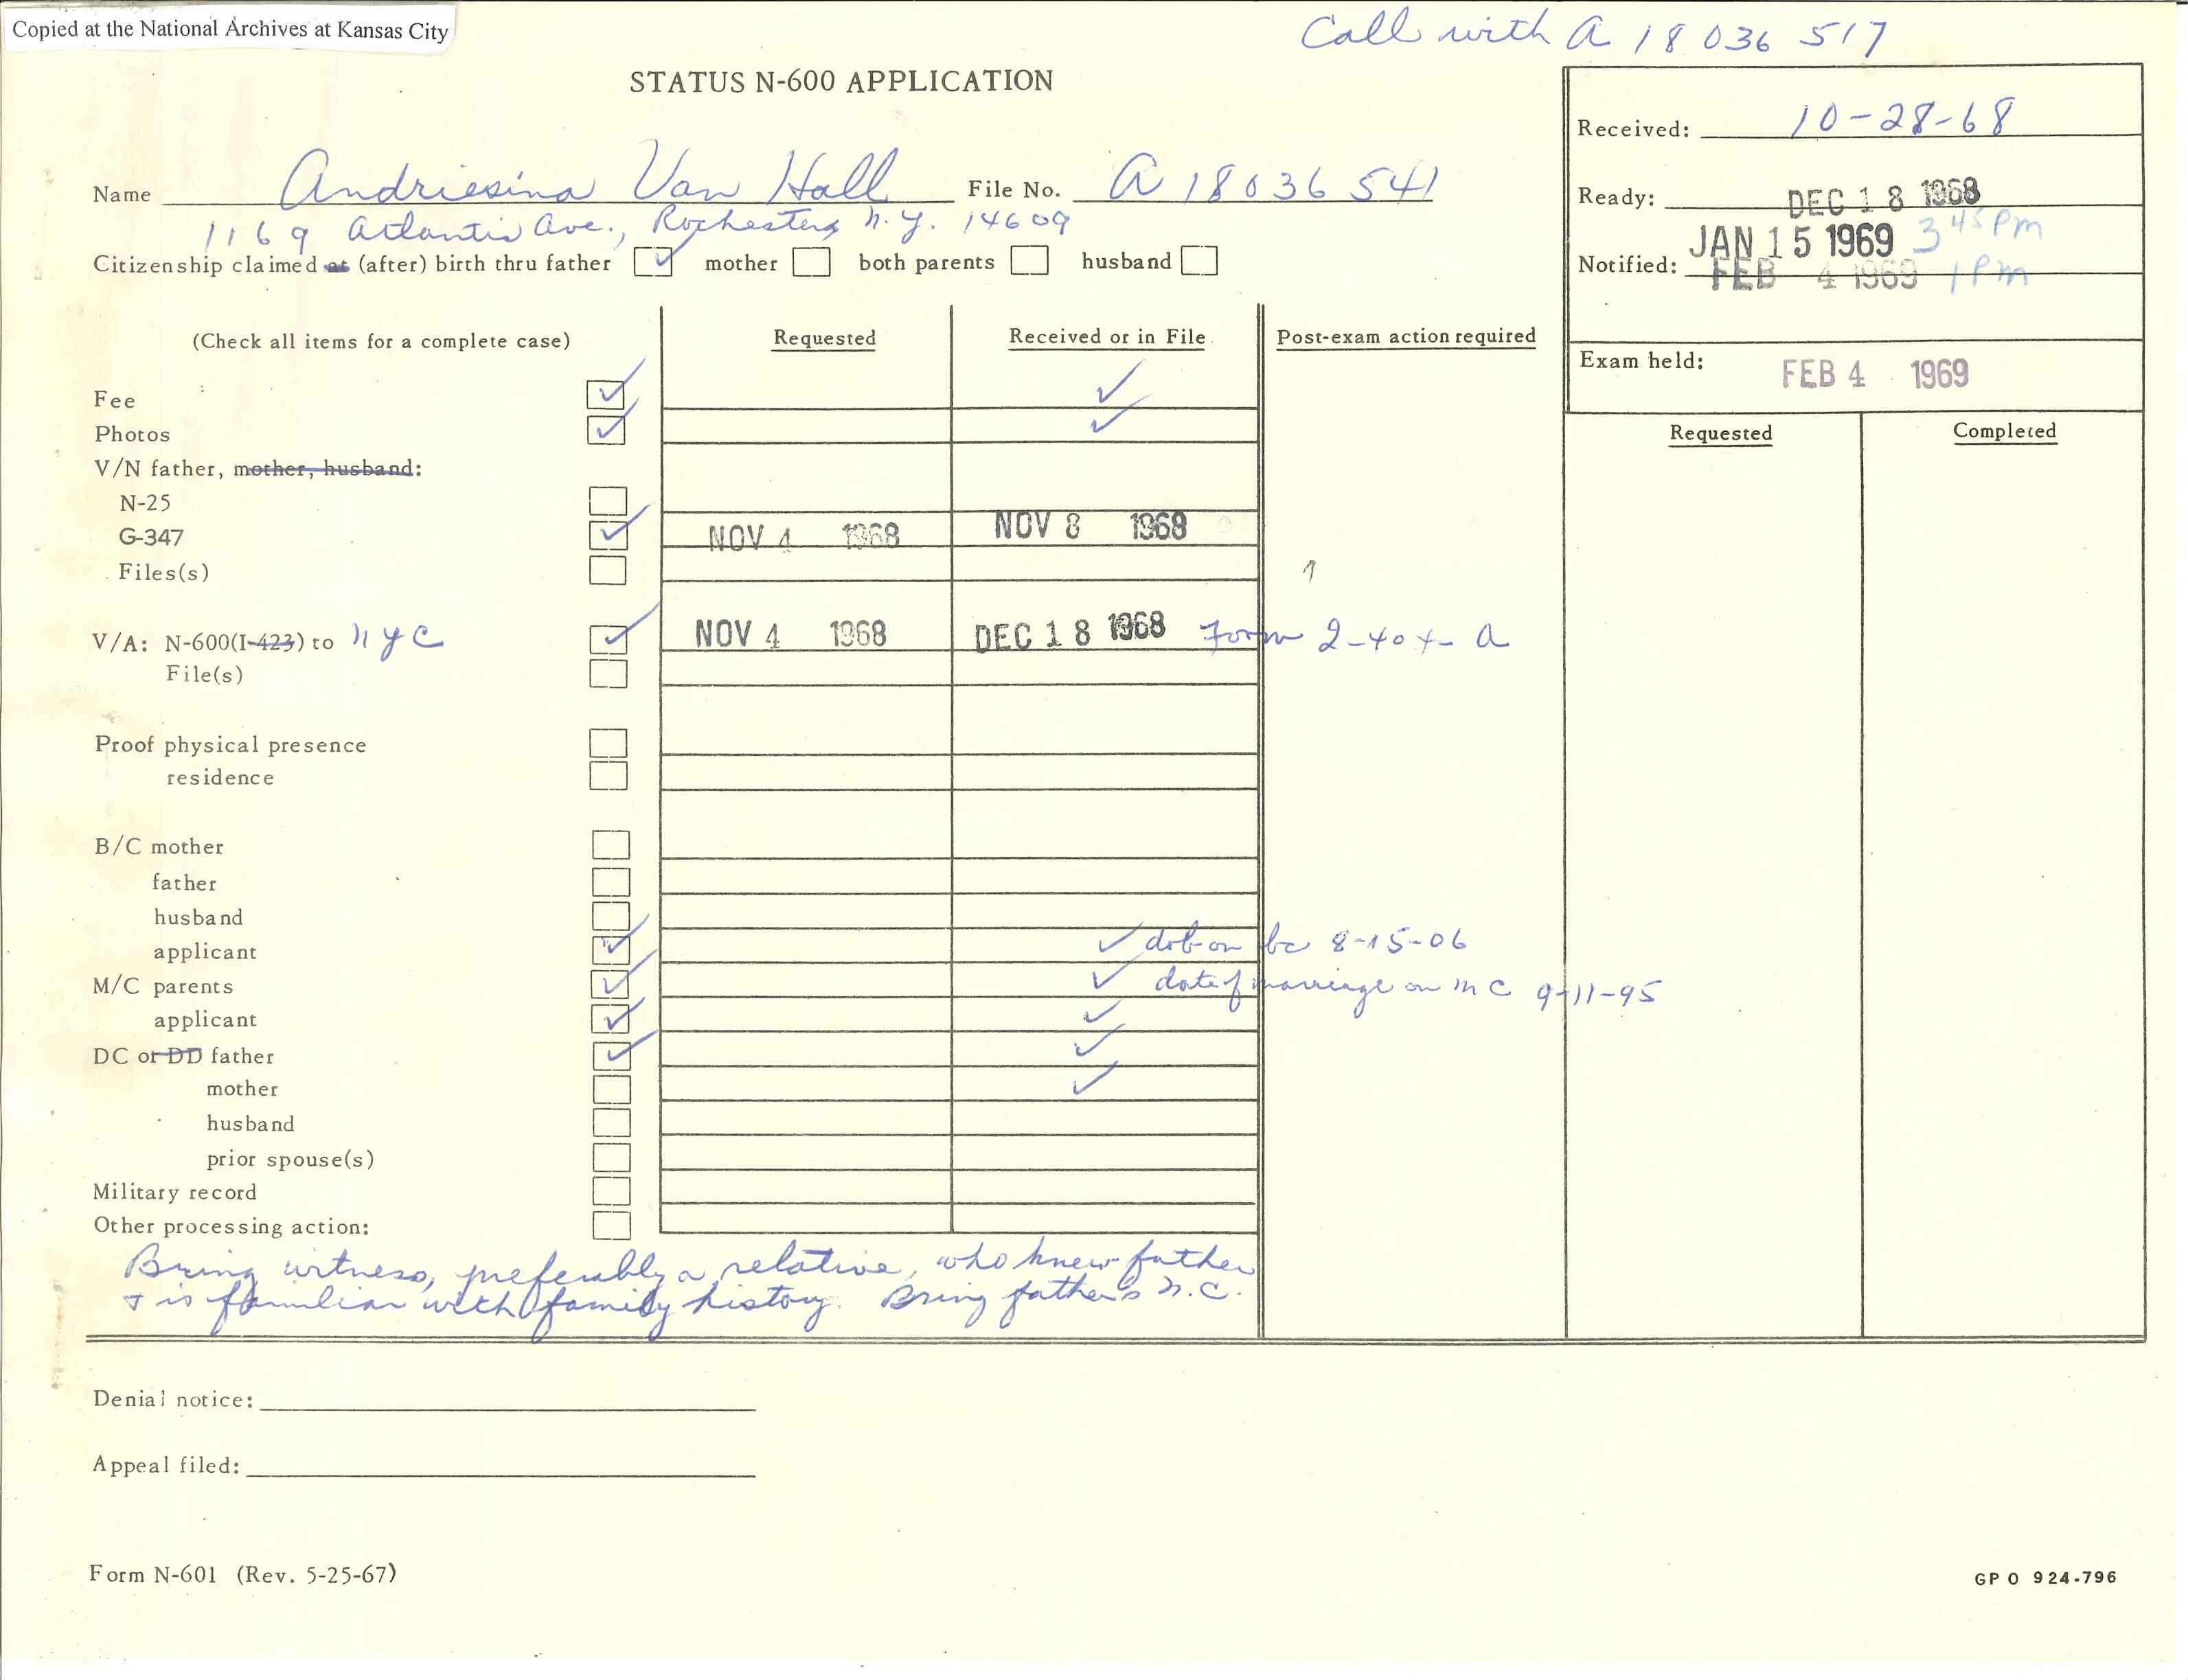 Copied at the National Archives at Kansas City
Call with A 18 036 517
STATUS N-600 APPLICATION
Received: 10-28-68
Name Andriesina Van Hall File No. A 18 036 541
Ready: DEC 18 1968
1169 Atlantis Ave., Rochester, N.Y. 14609
JAN 15 1969 3 45 PM
Citizenship claimed at (after) birth thru father ✓ mother both parents husband
Notified: FEB 4 1969 1 PM
(Check all items for a complete case) Requested Received or in File Post-exam action required
Exam held: FEB 4 1969
Requested Completed
Fee ✓ ✓
Photos ✓ ✓
V/N father, mother, husband:
N-25
G-347 ✓ NOV 4 1968 NOV 8 1968
Files(s)
V/A: N-600(I-423) to NYC ✓ NOV 4 1968 DEC 18 1968 Form 2-404-A
File(s)
Proof physical presence
residence
B/C mother
father
husband
applicant ✓ ✓ dob on bc 8-15-06
M/C parents ✓ ✓ date of marriage on MC 9-11-95
applicant ✓ ✓
DC or DD father ✓ ✓
mother ✓
husband
prior spouse(s)
Military record
Other processing action:
Bring witness, preferably a relative, who knew father
+ is familiar with family history. Bring father's N.C.
Denial notice:
Appeal filed:
Form N-601 (Rev. 5-25-67)
GPO 924-796